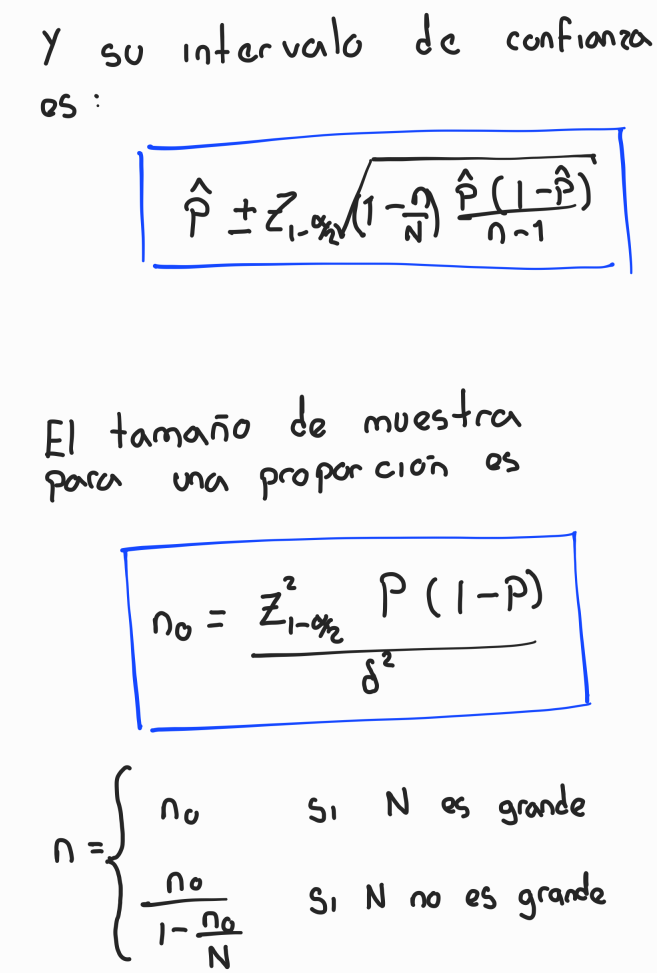 Y su intervalo de confianza
es:
P̂ ± Z_{1-α/2} √((1-n/N) P̂(1-P̂)/(n-1))
El tamaño de muestra
para una proporción es
n₀ = Z²_{1-α/2} P(1-P) / δ²
n = { n₀ si N es grande
n₀/(1-n₀/N) si N no es grande